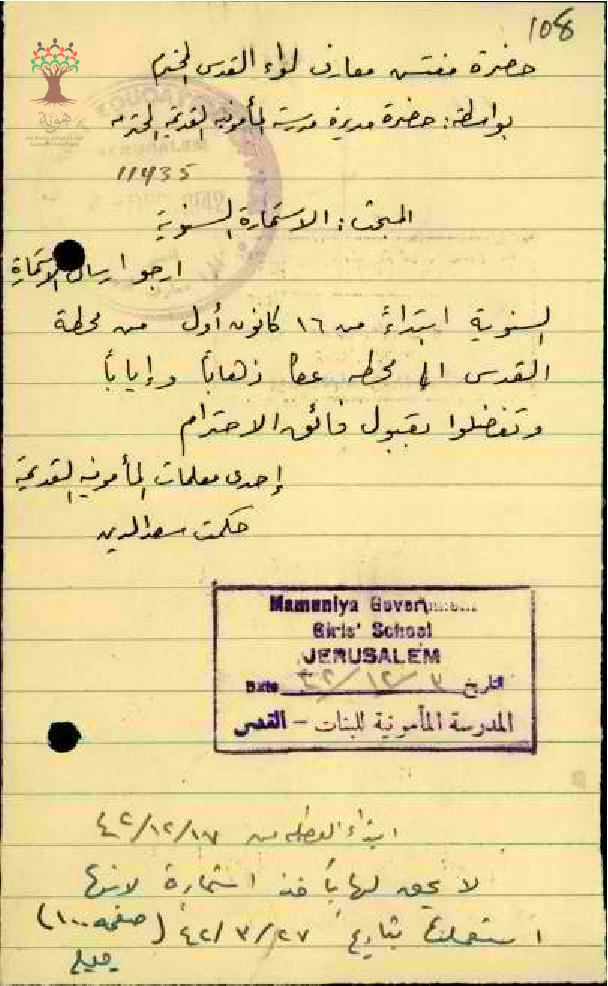 108
حضرة مفتش معارف لواء القدس المحترم
بواسطة: حضرة مديرة مدرسة المأمونية القديمة المحترمة
11435
المبحث: الاستمارة السنوية
ارجو ارسال الاستمارة
السنوية ابتداءً من ١٦ كانون أول من محطة
القدس الى محطة عكا ذهاباً وإياباً
وتفضلوا بقبول فائق الاحترام
إحدى معلمات المأمونية القديمة
حكمت سعد الدين
Mamuniya Government
Girls' School
JERUSALEM
Date ٤٢/١٢/٣ التاريخ
المدرسة المأمونية للبنات - القدس
ابتداء العطلة من ٤٢/١٢/١٧
لا يحق لها استمارة لانها
استعملتها بتاريخ ٤٢/٣/٢٧ (صفحه ١٠٠)
هوية